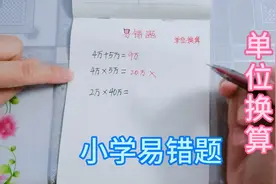 易错题
单位换算
4万+5万=9万
4万×5万=20万 ×
2万×40万=
单位换算
小学易错题